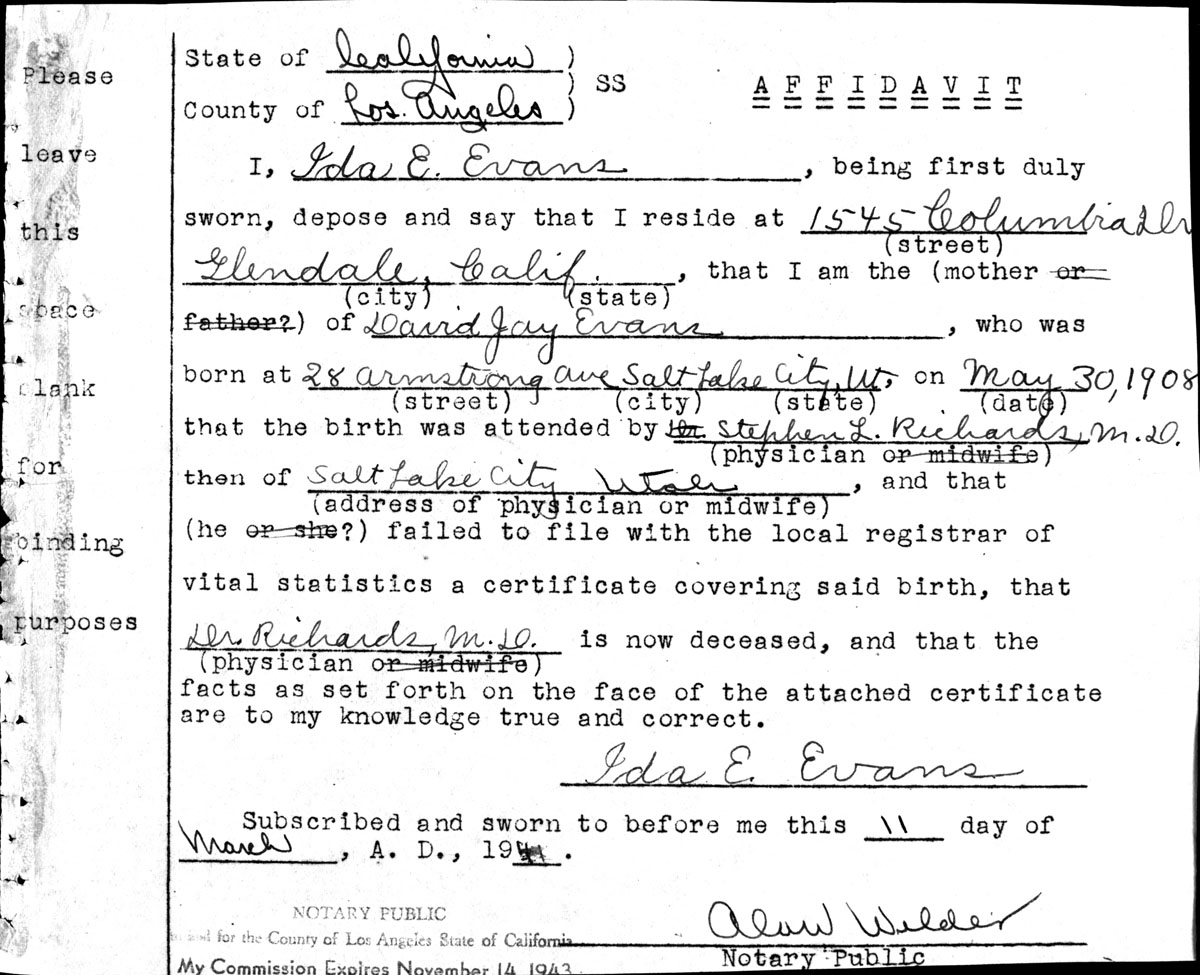 Please
leave
this
space
blank
for
binding
purposes
State of California )
) SS
County of Los. Angeles )
AFFIDAVIT
I, Ida E. Evans, being first duly
sworn, depose and say that I reside at 1545 Columbia Dr
(street)
Glendale, Calif., that I am the (mother or
(city) (state)
father?) of David Jay Evans, who was
born at 28 Armstrong Ave Salt Lake City, Ut, on May 30, 1908
(street) (city) (state) (date)
that the birth was attended by Dr. Stephen L. Richards, M.D.
(physician or midwife)
then of Salt Lake City Utah, and that
(address of physician or midwife)
(he or she?) failed to file with the local registrar of
vital statistics a certificate covering said birth, that
Dr. Richards, M.D. is now deceased, and that the
(physician or midwife)
facts as set forth on the face of the attached certificate
are to my knowledge true and correct.
Ida E. Evans
Subscribed and sworn to before me this 11 day of
March, A. D., 19.
NOTARY PUBLIC
and for the County of Los Angeles State of California
My Commission Expires November 14, 1943
Alan Wilder
Notary Public